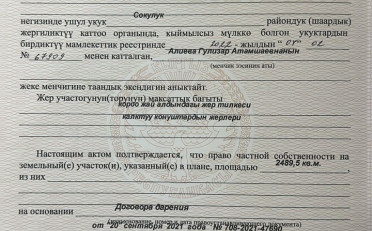 Сокулук
негизинде ушул укук районду́к (шаардык)
жергиликтүү каттоо органында, кыймылсыз мүлккө болгон укуктардын
бирдиктүү мамлекеттик реестринде 2022 - жылдын " 07 " 02
№ 67909 менен катталган, Алиева Гулизар Атамшаевнанын
(менчик ээсинин аты)
жеке менчигине таандык экендигин аныктайт.
Жер участогунун(торунун) максаттык багыты
короо жай алдындагы жер тилкеси
калктуу конуштардын жерлери
Настоящим актом подтверждается, что право частной собственности на
земельный(е) участок(и), указанный(е) в плане, площадью 2489,5 кв.м.
из них
Договора дарения
на основании
(наименование, номер и дата правоустанавливающего документа)
от "20" сентября 2021 года № 708-2021-47690